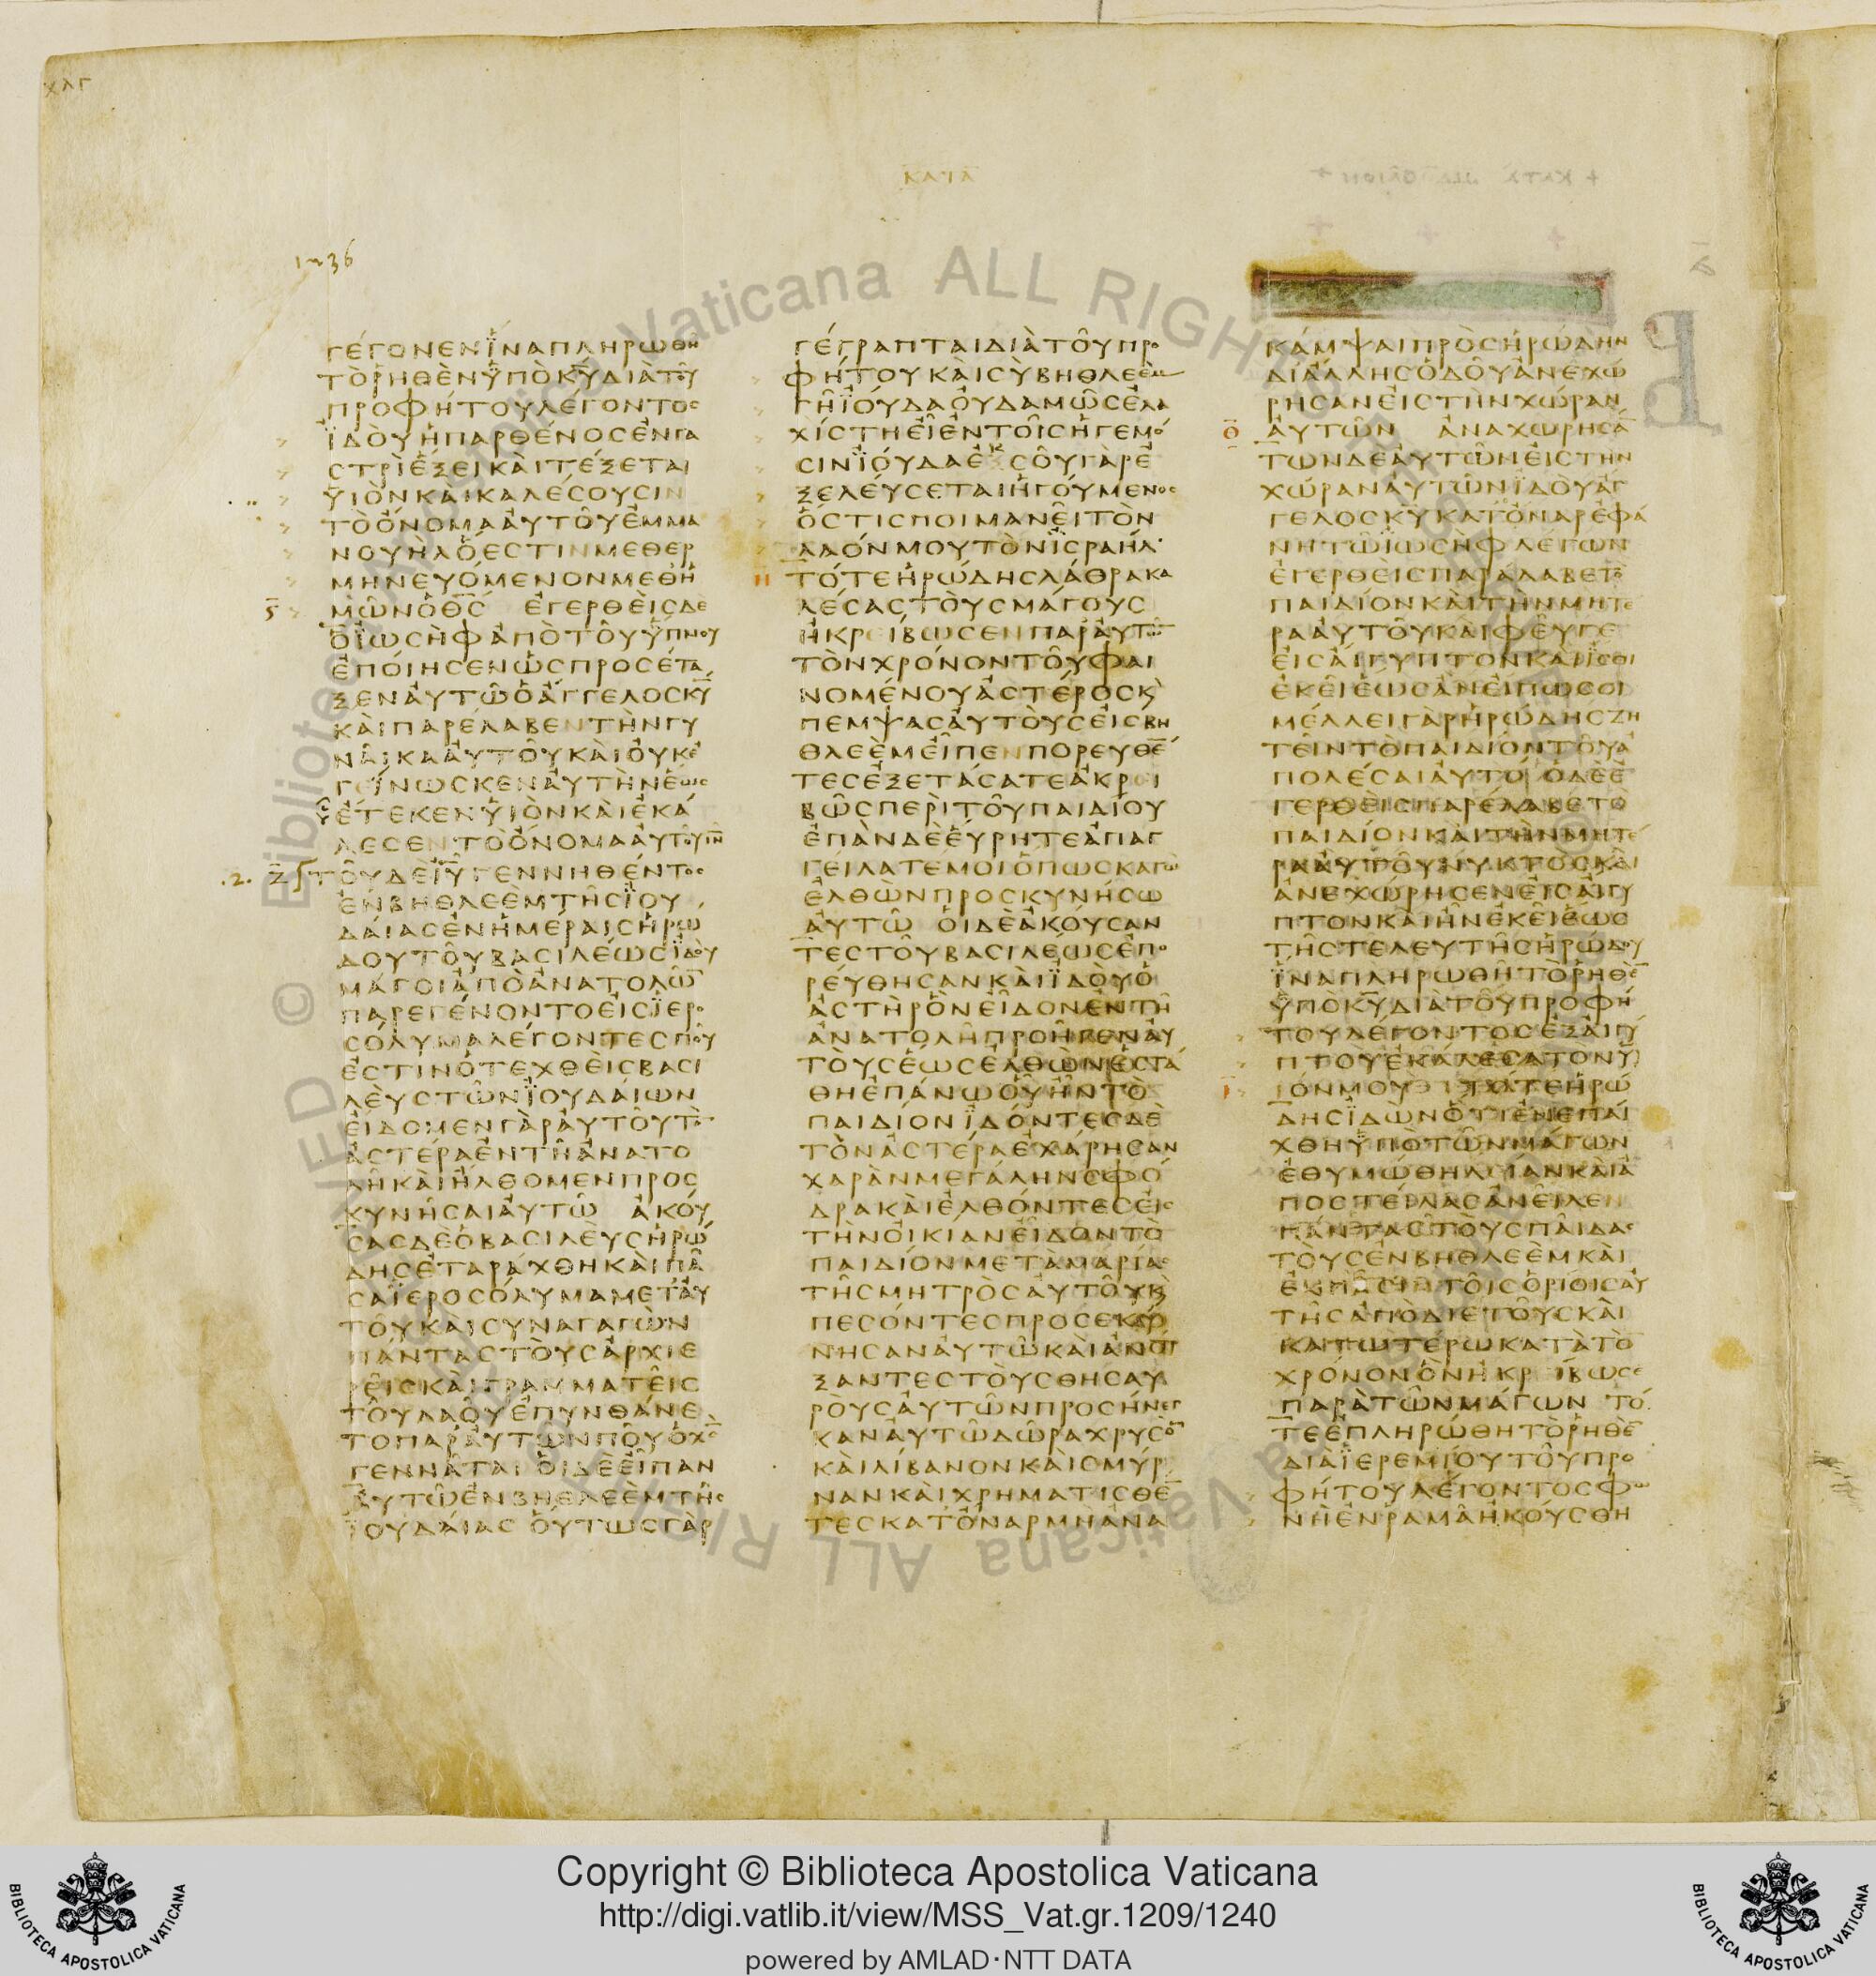 χλγ
ΚΑΤΑ
1236
ΓΕΓΟΝΕΝΪΝΑΠΛΗΡΩΘΗ
ΤΟΡΗΘΕΝΫΠΟΚΥΔΙΑΤΟΥ
ΠΡΟΦΗΤΟΥΛΕΓΟΝΤΟΣ
ΪΔΟΥΗΠΑΡΘΕΝΟΣΕΝΓΑ
ΣΤΡΙΕΞΕΙΚΑΙΤΕΞΕΤΑΙ
ΫΙΟΝΚΑΙΚΑΛΕΣΟΥΣΙΝ
ΤΟΟΝΟΜΑΑΥΤΟΥΕΜΜΑ
ΝΟΥΗΛΟΕΣΤΙΝΜΕΘΕΡ
ΜΗΝΕΥΟΜΕΝΟΝΜΕΘΗ
ΜΩΝΟΘΣ ΕΓΕΡΘΕΙΣΔΕ
ΟΪΩΣΗΦΑΠΟΤΟΥΫΠΝΟΥ
ΕΠΟΙΗΣΕΝΩΣΠΡΟΣΕΤΑ
ΞΕΝΑΥΤΩΟΑΓΓΕΛΟΣΚΥ
ΚΑΙΠΑΡΕΛΑΒΕΝΤΗΝΓΥ
ΝΑΙΚΑΑΥΤΟΥΚΑΙΟΥΚΕ
ΓΕΙΝΩΣΚΕΝΑΥΤΗΝΕΩΣ
ΕΤΕΚΕΝΫΙΟΝΚΑΙΕΚΑ
ΛΕΣΕΝΤΟΟΝΟΜΑΑΥΤΟΥΙΝ
ΤΟΥΔΕΙΥΓΕΝΝΗΘΕΝΤΟΣ
ΕΝΒΗΘΛΕΕΜΤΗΣΪΟΥ
ΔΑΙΑΣΕΝΗΜΕΡΑΙΣΗΡΩ
ΔΟΥΤΟΥΒΑΣΙΛΕΩΣΪΔΟΥ
ΜΑΓΟΙΑΠΟΑΝΑΤΟΛΩ
ΠΑΡΕΓΕΝΟΝΤΟΕΙΣΪΕΡΟ
ΣΟΛΥΜΑΛΕΓΟΝΤΕΣΠΟΥ
ΕΣΤΙΝΟΤΕΧΘΕΙΣΒΑΣΙ
ΛΕΥΣΤΩΝΪΟΥΔΑΙΩΝ
ΕΙΔΟΜΕΝΓΑΡΑΥΤΟΥΤΟ
ΑΣΤΕΡΑΕΝΤΗΑΝΑΤΟ
ΛΗΚΑΙΗΛΘΟΜΕΝΠΡΟΣ
ΚΥΝΗΣΑΙΑΥΤΩ ΑΚΟΥ
ΣΑΣΔΕΟΒΑΣΙΛΕΥΣΗΡΩ
ΔΗΣΕΤΑΡΑΧΘΗΚΑΙΠΑ
ΣΑΪΕΡΟΣΟΛΥΜΑΜΕΤΑΥ
ΤΟΥΚΑΙΣΥΝΑΓΑΓΩΝ
ΠΑΝΤΑΣΤΟΥΣΑΡΧΙΕ
ΡΕΙΣΚΑΙΓΡΑΜΜΑΤΕΙΣ
ΤΟΥΛΑΟΥΕΠΥΝΘΑΝΕ
ΤΟΠΑΡΑΥΤΩΝΠΟΥΟΧΣ
ΓΕΝΝΑΤΑΙ ΟΙΔΕΕΙΠΑΝ
ΑΥΤΩΕΝΒΗΘΛΕΕΜΤΗΣ
ΪΟΥΔΑΙΑΣ ΟΥΤΩΣΓΑΡ
ΓΕΓΡΑΠΤΑΙΔΙΑΤΟΥΠΡΟ
ΦΗΤΟΥΚΑΙΣΥΒΗΘΛΕΕΜ
ΓΗΪΟΥΔΑΟΥΔΑΜΩΣΕΛΑ
ΧΙΣΤΗΕΙΕΝΤΟΙΣΗΓΕΜΟ
ΣΙΝΪΟΥΔΑΕΚΣΟΥΓΑΡΕ
ΞΕΛΕΥΣΕΤΑΙΗΓΟΥΜΕΝΟΣ
ΟΣΤΙΣΠΟΙΜΑΝΕΙΤΟΝ
ΛΑΟΝΜΟΥΤΟΝΪΣΡΑΗΛ
ΤΟΤΕΗΡΩΔΗΣΛΑΘΡΑΚΑ
ΛΕΣΑΣΤΟΥΣΜΑΓΟΥΣ
ΗΚΡΕΙΒΩΣΕΝΠΑΡΑΥΤΩ
ΤΟΝΧΡΟΝΟΝΤΟΥΦΑΙ
ΝΟΜΕΝΟΥΑΣΤΕΡΟΣΚ
ΠΕΜΨΑΣΑΥΤΟΥΣΕΙΣΒΗ
ΘΛΕΕΜΕΙΠΕΝΠΟΡΕΥΘΕ
ΤΕΣΕΞΕΤΑΣΑΤΕΑΚΡΕΙ
ΒΩΣΠΕΡΙΤΟΥΠΑΙΔΙΟΥ
ΕΠΑΝΔΕΕΥΡΗΤΕΑΠΑΓ
ΓΕΙΛΑΤΕΜΟΙΟΠΩΣΚΑΓΩ
ΕΛΘΩΝΠΡΟΣΚΥΝΗΣΩ
ΑΥΤΩ ΟΙΔΕΑΚΟΥΣΑΝ
ΤΕΣΤΟΥΒΑΣΙΛΕΩΣΕΠΟ
ΡΕΥΘΗΣΑΝΚΑΙΪΔΟΥΟ
ΑΣΤΗΡΟΝΕΙΔΟΝΕΝΤΗ
ΑΝΑΤΟΛΗΠΡΟΗΓΕΝΑΥ
ΤΟΥΣΕΩΣΕΛΘΩΝΕΣΤΑ
ΘΗΕΠΑΝΩΟΥΗΝΤΟ
ΠΑΙΔΙΟΝΪΔΟΝΤΕΣΔΕ
ΤΟΝΑΣΤΕΡΑΕΧΑΡΗΣΑΝ
ΧΑΡΑΝΜΕΓΑΛΗΝΣΦΟ
ΔΡΑΚΑΙΕΛΘΟΝΤΕΣΕΙΣ
ΤΗΝΟΙΚΙΑΝΕΙΔΟΝΤΟ
ΠΑΙΔΙΟΝΜΕΤΑΜΑΡΙΑΣ
ΤΗΣΜΗΤΡΟΣΑΥΤΟΥΚ
ΠΕΣΟΝΤΕΣΠΡΟΣΕΚΥ
ΝΗΣΑΝΑΥΤΩΚΑΙΑΝΟΙ
ΞΑΝΤΕΣΤΟΥΣΘΗΣΑΥ
ΡΟΥΣΑΥΤΩΝΠΡΟΣΗΝΕΓ
ΚΑΝΑΥΤΩΔΩΡΑΧΡΥΣΟ
ΚΑΙΛΙΒΑΝΟΝΚΑΙΣΜΥΡ
ΝΑΝΚΑΙΧΡΗΜΑΤΙΣΘΕ
ΤΕΣΚΑΤΟΝΑΡΜΗΑΝΑ
ΚΑΜΨΑΙΠΡΟΣΗΡΩΔΗΝ
ΔΙΑΛΛΗΣΟΔΟΥΑΝΕΧΩ
ΡΗΣΑΝΕΙΣΤΗΝΧΩΡΑΝ
ΑΥΤΩΝ ΑΝΑΧΩΡΗΣΑ
ΤΩΝΔΕΑΥΤΩΝΕΙΣΤΗΝ
ΧΩΡΑΝΑΥΤΩΝΪΔΟΥΑΓ
ΓΕΛΟΣΚΥΚΑΤΟΝΑΡΕΦΑ
ΝΗΤΩΪΩΣΗΦΛΕΓΩΝ
ΕΓΕΡΘΕΙΣΠΑΡΑΛΑΒΕΤΟ
ΠΑΙΔΙΟΝΚΑΙΤΗΝΜΗΤΕ
ΡΑΑΥΤΟΥΚΑΙΦΕΥΓΕ
ΕΙΣΑΙΓΥΠΤΟΝΚΑΙΪΣΘΙ
ΕΚΕΙΕΩΣΑΝΕΙΠΩΣΟΙ
ΜΕΛΛΕΙΓΑΡΗΡΩΔΗΣΖΗ
ΤΕΙΝΤΟΠΑΙΔΙΟΝΤΟΥΑ
ΠΟΛΕΣΑΙΑΥΤΟ ΟΔΕΕ
ΓΕΡΘΕΙΣΠΑΡΕΛΑΒΕΤΟ
ΠΑΙΔΙΟΝΚΑΙΤΗΝΜΗΤΕ
ΡΑΑΥΤΟΥΝΥΚΤΟΣΚΑΙ
ΑΝΕΧΩΡΗΣΕΝΕΙΣΑΙΓΥ
ΠΤΟΝΚΑΙΗΝΕΚΕΙΕΩΣ
ΤΗΣΤΕΛΕΥΤΗΣΗΡΩΔΟΥ
ΪΝΑΠΛΗΡΩΘΗΤΟΡΗΘΕ
ΫΠΟΚΥΔΙΑΤΟΥΠΡΟΦΗ
ΤΟΥΛΕΓΟΝΤΟΣΕΞΑΙΓΥ
ΠΤΟΥΕΚΑΛΕΣΑΤΟΝΥ
ΙΟΝΜΟΥ ΤΟΤΕΗΡΩ
ΔΗΣΪΔΩΝΟΤΙΕΝΕΠΑΙ
ΧΘΗΫΠΟΤΩΝΜΑΓΩΝ
ΕΘΥΜΩΘΗΛΙΑΝΚΑΙΑ
ΠΟΣΤΕΙΛΑΣΑΝΕΙΛΕΝ
ΠΑΝΤΑΣΤΟΥΣΠΑΙΔΑΣ
ΤΟΥΣΕΝΒΗΘΛΕΕΜΚΑΙ
ΕΝΠΑΣΙΝΤΟΙΣΟΡΙΟΙΣΑΥ
ΤΗΣΑΠΟΔΙΕΤΟΥΣΚΑΙ
ΚΑΤΩΤΕΡΩΚΑΤΑΤΟ
ΧΡΟΝΟΝΟΝΗΚΡΙΒΩΣΕ
ΠΑΡΑΤΩΝΜΑΓΩΝ ΤΟ
ΤΕΕΠΛΗΡΩΘΗΤΟΡΗΘΕ
ΔΙΑΪΕΡΕΜΙΟΥΤΟΥΠΡΟ
ΦΗΤΟΥΛΕΓΟΝΤΟΣΦΩ
ΝΗΕΝΡΑΜΑΗΚΟΥΣΘΗ
Vaticana ALL RIGH
Copyright © Biblioteca Apostolica Vaticana
http://digi.vatlib.it/view/MSS_Vat.gr.1209/1240
powered by AMLAD·NTT DATA
BIBLIOTECA APOSTOLICA VATICANA
BIBLIOTECA APOSTOLICA VATICANA